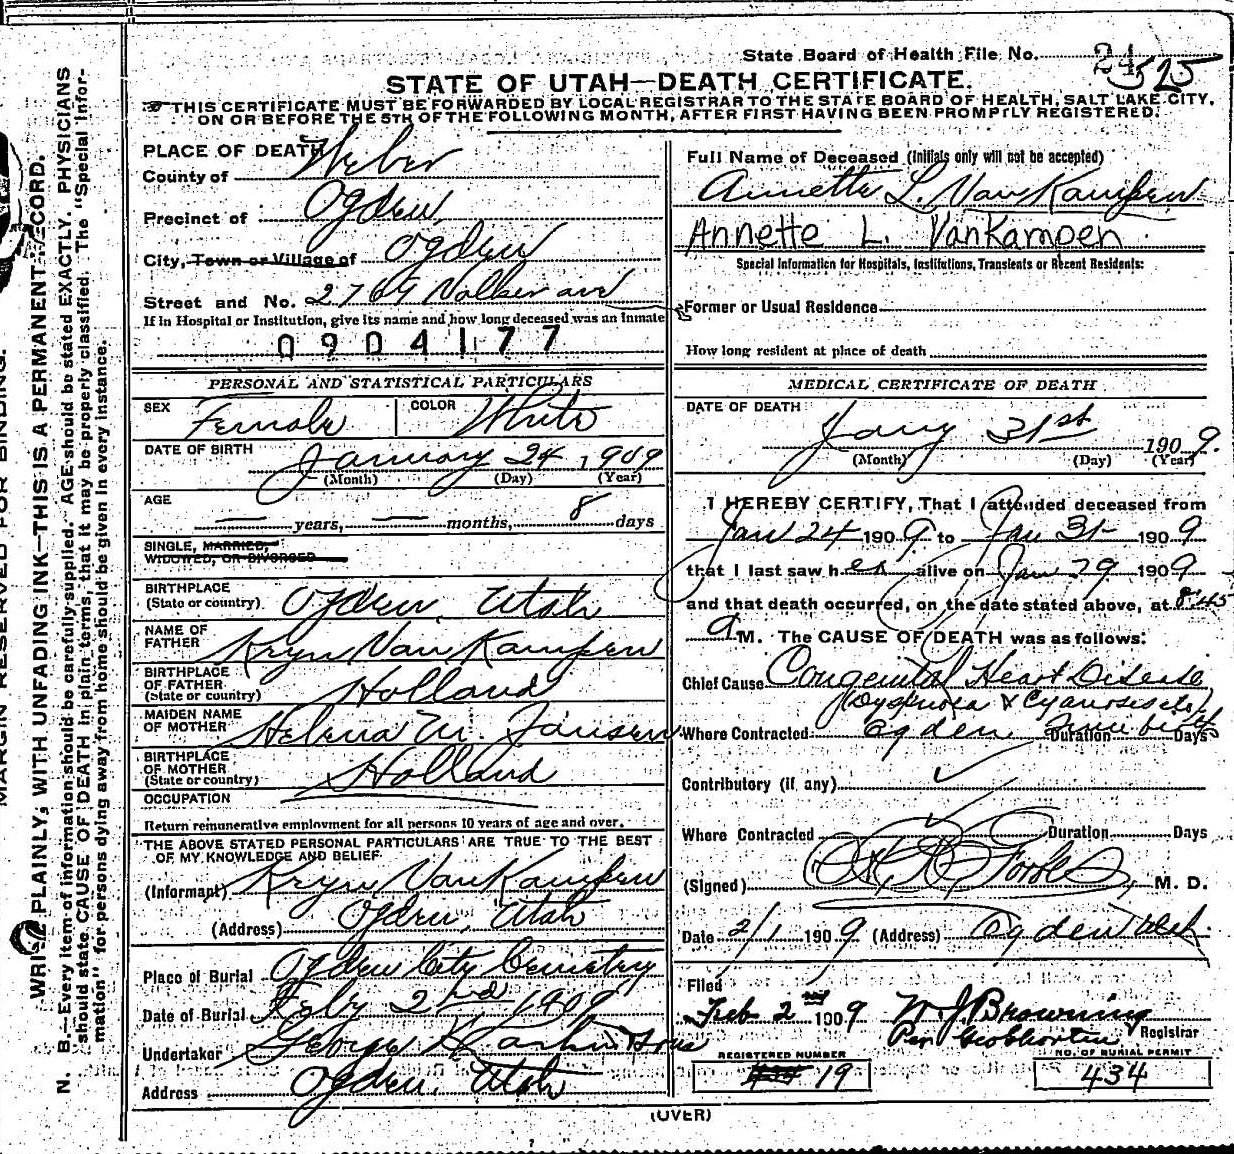 State Board of Health File No. 24 525
STATE OF UTAH—DEATH CERTIFICATE.
THIS CERTIFICATE MUST BE FORWARDED BY LOCAL REGISTRAR TO THE STATE BOARD OF HEALTH, SALT LAKE CITY,
ON OR BEFORE THE 5TH OF THE FOLLOWING MONTH, AFTER FIRST HAVING BEEN PROMPTLY REGISTERED.
MARGIN RESERVED FOR BINDING.
WRITE PLAINLY, WITH UNFADING INK—THIS IS A PERMANENT RECORD.
N. B.—Every item of information should be carefully supplied. AGE should be stated EXACTLY. PHYSICIANS
should state CAUSE OF DEATH in plain terms, that it may be properly classified. The "Special Infor-
mation" for persons dying away from home should be given in every instance.
PLACE OF DEATH
County of Weber
Precinct of Ogden
City, Town or Village of Ogden
Street and No. 2769 ave
If in Hospital or Institution, give its name and how long deceased was an inmate
0904177
PERSONAL AND STATISTICAL PARTICULARS
SEX Female COLOR White
DATE OF BIRTH January 24, 1909
(Month) (Day) (Year)
AGE
— years, — months, 8 days
SINGLE, MARRIED,
WIDOWED, OR DIVORCED
BIRTHPLACE
(State or country) Ogden, Utah
NAME OF
FATHER Kryn Van Kampen
BIRTHPLACE
OF FATHER
(State or country) Holland
MAIDEN NAME
OF MOTHER Helena M. Jansen
BIRTHPLACE
OF MOTHER
(State or country) Holland
OCCUPATION
Return remunerative employment for all persons 10 years of age and over.
THE ABOVE STATED PERSONAL PARTICULARS ARE TRUE TO THE BEST
OF MY KNOWLEDGE AND BELIEF
(Informant) Kryn Van Kampen
(Address) Ogden, Utah
Place of Burial Ogden City Cemetry
Date of Burial Feby 2nd 1909
Undertaker George Sons
Address Ogden, Utah
Full Name of Deceased (Initials only will not be accepted)
Annette L. Van Kampen
Annette L. VanKampen
Special Information for Hospitals, Institutions, Transients or Recent Residents:
Former or Usual Residence
How long resident at place of death
MEDICAL CERTIFICATE OF DEATH
DATE OF DEATH
Jany 31st 1909.
(Month) (Day) (Year)
I HEREBY CERTIFY, That I attended deceased from
Jan 24 1909 to Jan 31 1909
that I last saw her alive on Jan 29 1909
and that death occurred, on the date stated above, at 8:45
a M. The CAUSE OF DEATH was as follows:
Chief Cause Congenital Heart Disease
(Dyspnoea & Cyanosis etc)
Where Contracted Ogden Duration since birth Days
Contributory (if any)
Where Contracted Duration Days
(Signed) M. D.
Date 2/1 1909 (Address) Ogden Utah.
Filed
Feb 2nd 1909 W J Browning
Per Registrar
REGISTERED NUMBER 19
NO. OF BURIAL PERMIT 434
(OVER)